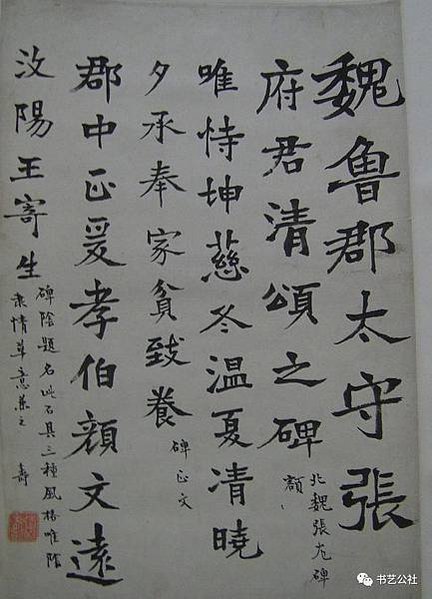 魏魯郡太守張
府君清頌之碑
北魏張尨碑
額
唯恃坤慈冬温夏清曉
夕承奉家貧致養
碑正文
郡中正爰孝伯顏文遠
汶陽王寄生
碑陰題名此石具三種風格唯陰
隶情草意兼之 壽
书艺公社